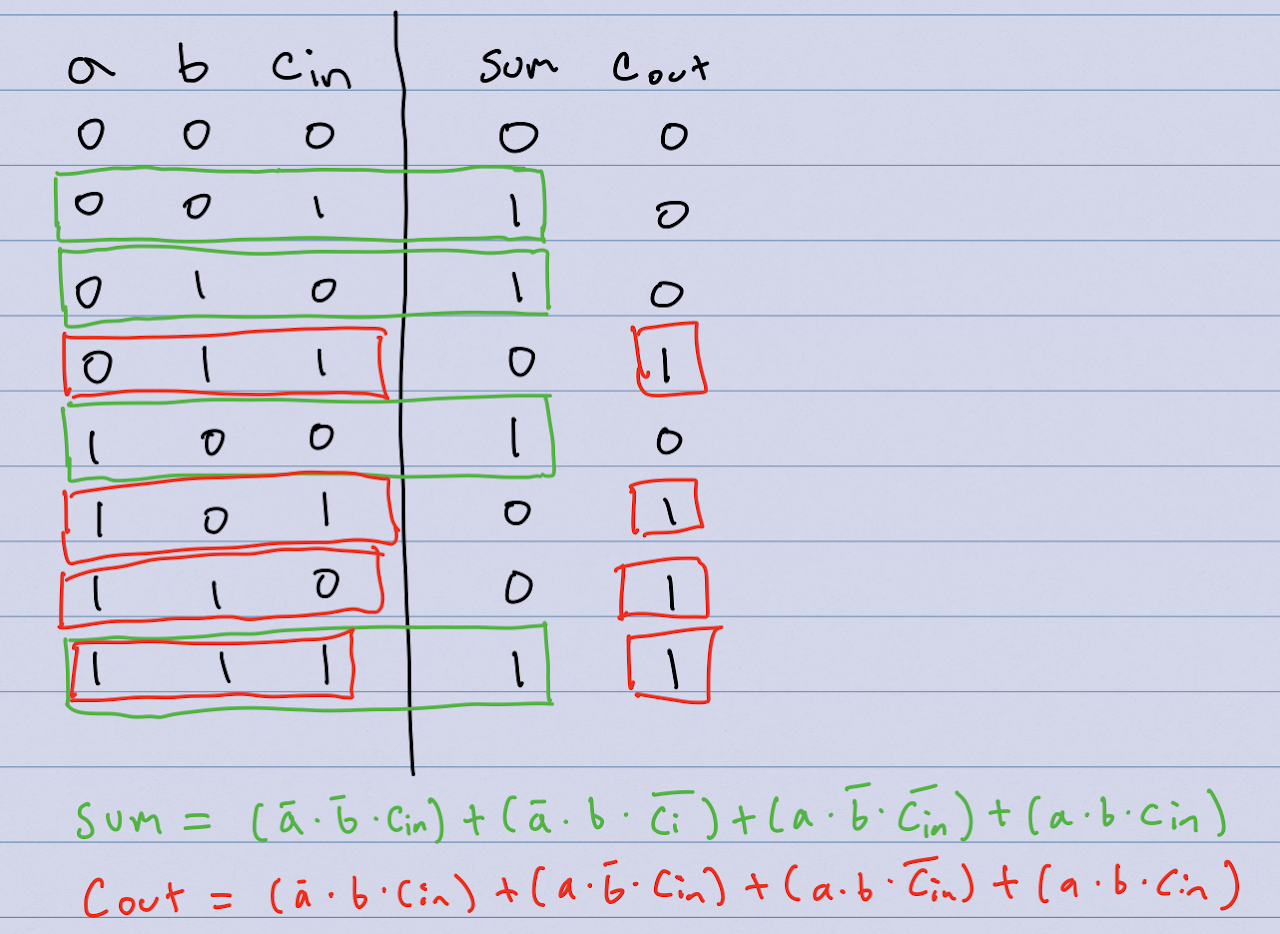 a b Cin Sum Cout
0 0 0 0 0
0 0 1 1 0
0 1 0 1 0
0 1 1 0 1
1 0 0 1 0
1 0 1 0 1
1 1 0 0 1
1 1 1 1 1
Sum = (a̅ · b̅ · Cin) + (a̅ · b · C̅i̅) + (a · b̅ · C̅i̅n̅) + (a · b · Cin)
Cout = (a̅ · b · Cin) + (a · b̅ · Cin) + (a · b · C̅i̅n̅) + (a · b · Cin)